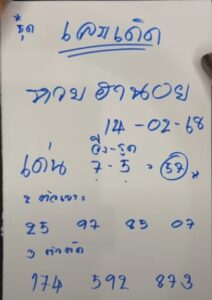 * ชุด เลขเด็ด
หวยฮานอย
14-02-68
วิ่ง-รูด
เด่น 7-5 = 57 *
2 ตัวเจาะ
25 97 85 07
3 ตัวตัด
174 592 873